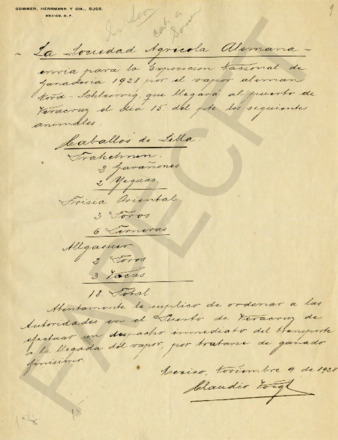 SOMMER, HERRMANN Y CIA., SUCS.
MEXICO, D. F.
9
La Sociedad Agrícola Alemana
envia para la Exposicion Nacional de
Ganaderia 1928 por el vapor aleman
Nord-Schleswig que llegará al puerto de
Veracruz el dia 15 del pte los siguientes
animales
Caballos de Silla
Trakehnen
3 Garañones
2 Yeguas
Frisia Oriental
3 Toros
6 Terneras
Allgaeuer
2 Toros
3 Vacas
18 Total
Atentamente le suplico de ordenar a las
Autoridades en el Puerto de Veracruz de
efectuar un despacho immediato del transporte
a la llegada del vapor, por tratarse de ganado
finisimo.
Mexico, Noviembre 9 de 1928
Claudio Voigt
FAPECFT